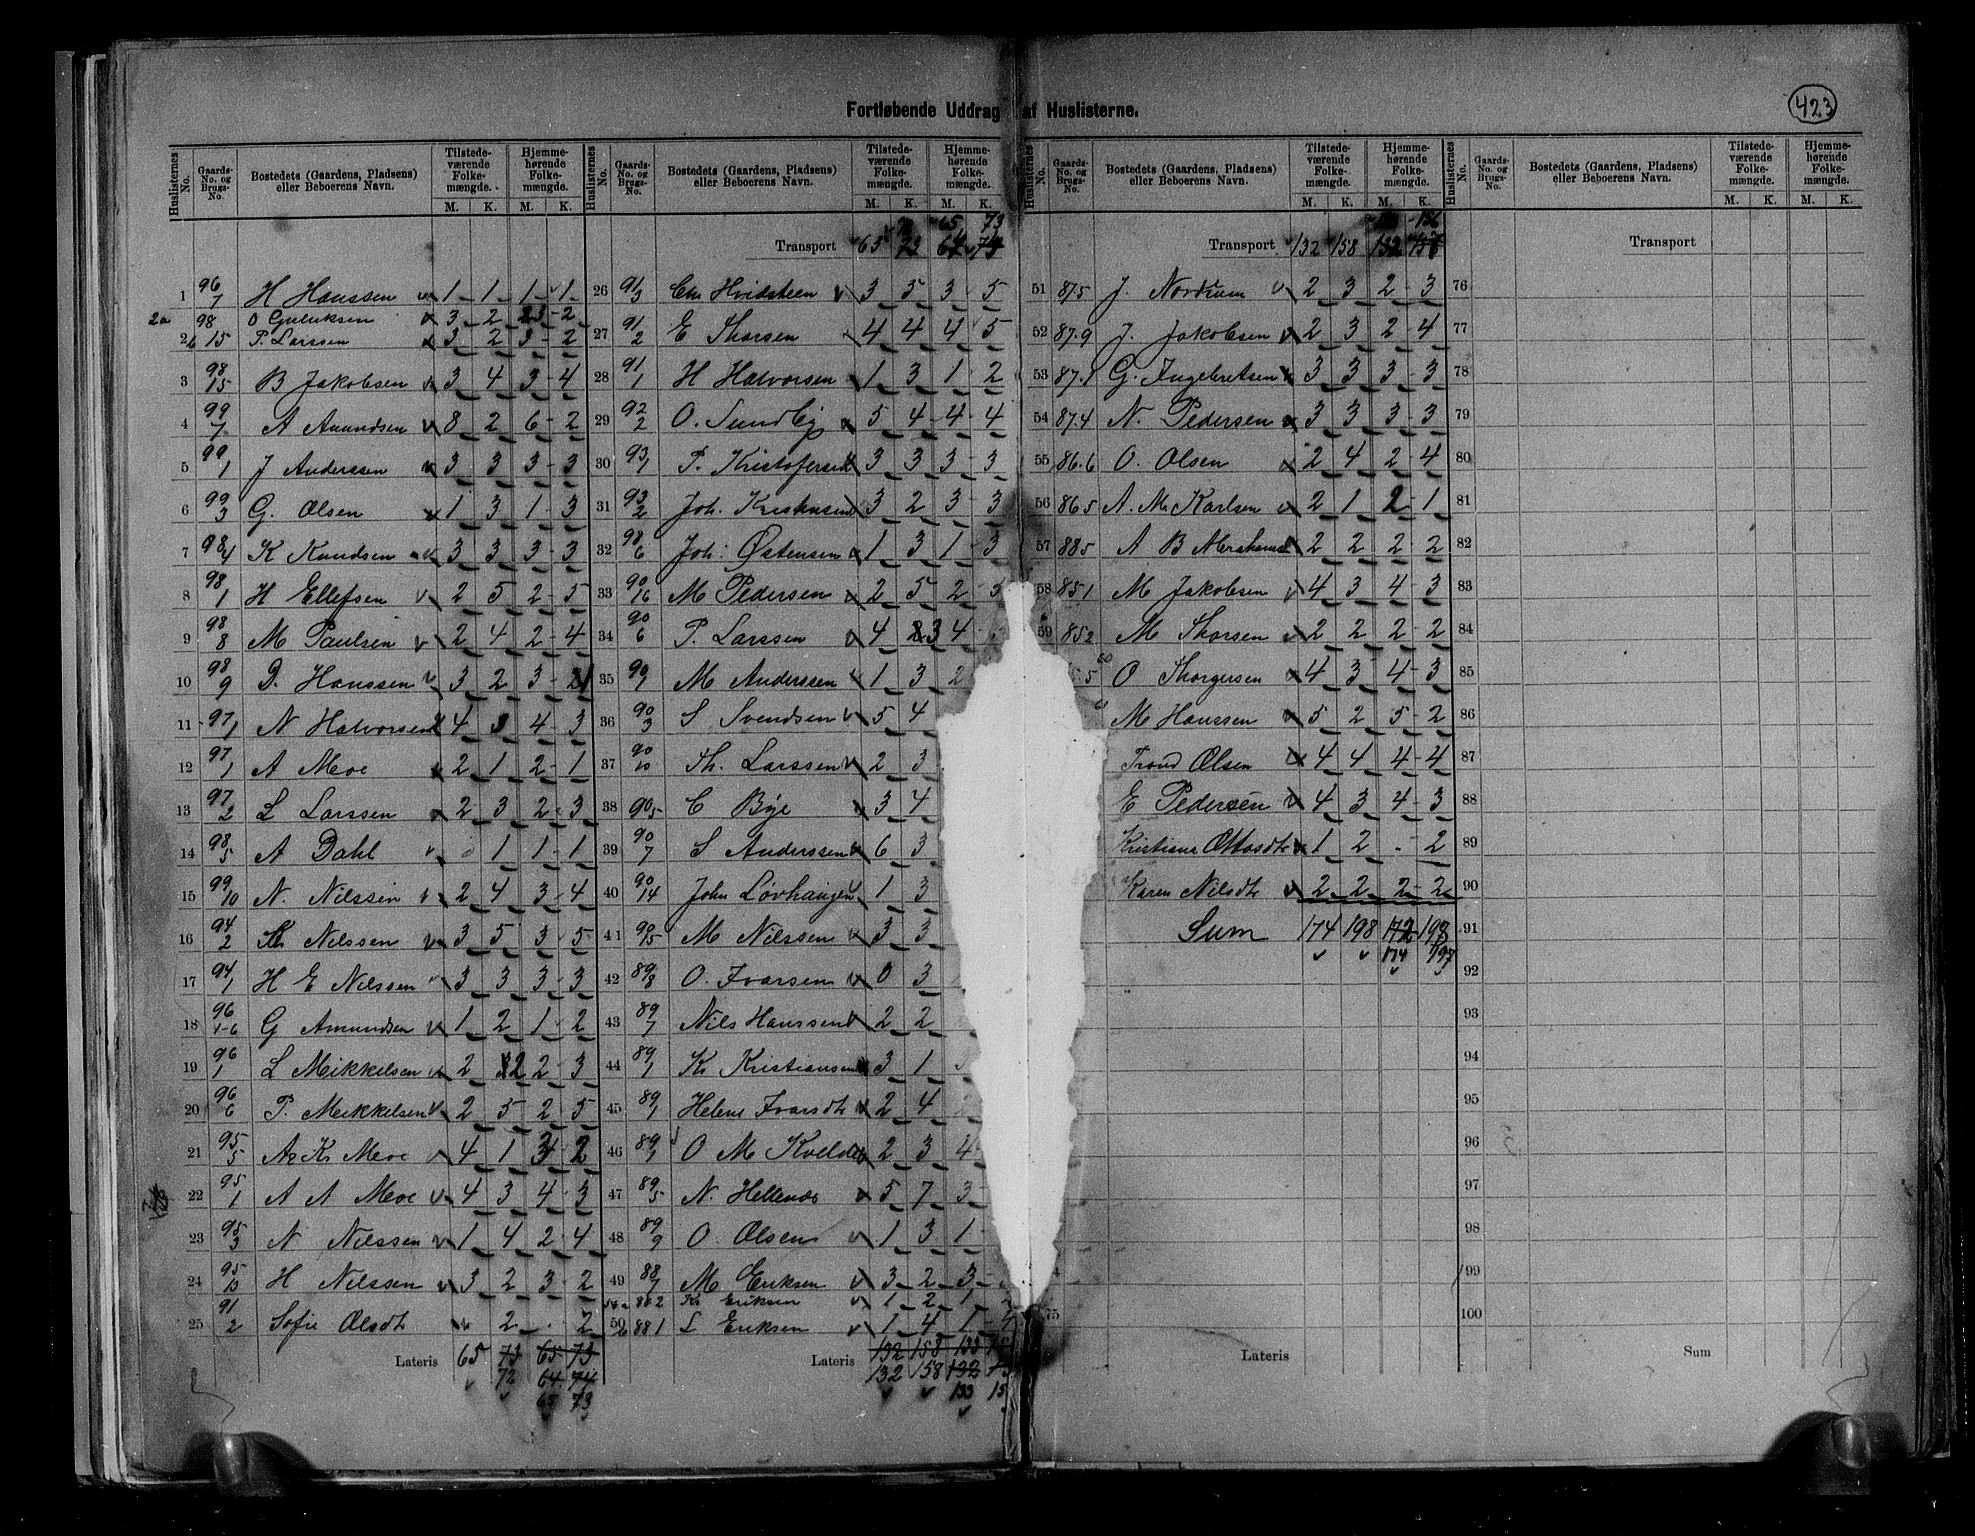 423
Fortløbende Uddrag af Huslisterne.
Huslisternes No. Gaards-No. og Brugs-No. Bostedets (Gaardens, Pladsens) eller Beboerens Navn. Tilstedeværende Folkemængde. M. K. Hjemmehørende Folkemængde. M. K.
1 96/7 H Hanssen 1 1 1 1
2a 98 3 2 2
2b 15 P. Larssen 3 2 3 2
3 98/15 B Jakobsen 3 4 3 4
4 99/7 A Amundsen 8 2 6 2
5 99/1 J Anderssen 3 3 3 3
6 99/3 G. Olsen 1 3 1 3
7 98/4 K Knudsen 3 3 3 3
8 98/1 H Ellefsen 2 5 2 5
9 98/8 M Paulsen 2 4 2 4
10 98/9 D. Hanssen 3 2 3
11 97/1 N Halvorsen 4 3 4 3
12 97/1 A Moe 2 1 2 1
13 97/2 L Larssen 2 3 2 3
14 98/5 A Dahl 1 1 1
15 99/10 N. Nilssen 2 4 3 4
16 94/2 Nilssen 3 5 3 5
17 94/1 H E Nilssen 3 3 3 3
18 96/1-6 G Amundsen 1 2 1 2
19 96/1 L Mikkelsen 2 2 2 3
20 96/6 P. Mikkelsen 2 5 2 5
21 95/5 K Moe 4 1 3 2
22 95/1 A A Moe 4 3 4 3
23 95/3 N Nilssen 1 4 2 4
24 95/13 H Nilssen 3 2 3 2
25 91/2 Sofie Olsdt 2 . 2
Lateris 65 73 65 73
72 64 74
65 73
Transport 65 72 65 73
64 74
26 91/3 Chr Hvidsteen 3 5 3 5
27 91/2 E Thorsen 4 4 4 5
28 91/1 H Halvorsen 1 3 1 2
29 92/2 O. Sundby 5 4 4 4
30 93/1 P. Kristofersen 3 3 3 3
31 93/2 Joh. Kristiansen 3 2 3 3
32 98/6 Joh: Østensen 1 3 1 3
33 90/16 M Pedersen 2 5 2 5
34 90/6 P. Larssen 4 3 4
35 90/1 M Anderssen 1 3 2
36 90/3 S Svendsen 5 4
37 90/10 Th. Larssen 2 3
38 90/5 C Bye 3 4
39 90/7 S Anderssen 6 3
40 90/14 John Lövhaugen 1 3
41 90/15 M Nilssen 3 3
42 89/8 O. Ivarsen 0 3
43 89/7 Nils Hanssen 2 2
44 89/1 Kr Kristiansen 3 1
45 89/1 Helene Ivarsdt 2 4
46 89/1 O M 2 3 4
47 89/5 N. 5 7 3
48 89/9 O. Olsen 1 3 1
49 88/7 M Eriksen 3 2 3
50a 88 2 Kr Eriksen 1 2 1 2
50b 88 1 L Eriksen 1 4 1 4
Lateris 132 158 133
132 158 132
133
Transport 132 158 132 156
51 87.5 J Nordrum 2 3 2 3
52 87.9 J. Jakobsen 2 3 2 4
53 87.1 G. Ingebretsen 3 3 3 3
54 87.4 N. Pedersen 3 3 3 3
55 86.6 O. Olsen 2 4 2 4
56 86 5 A. M. Karlsen 2 1 2 1
57 88 5 A B 2 2 2 2
58 85 1 M Jakobsen 4 3 4 3
59 85 2 M Thorsen 2 2 2 2
60 5 O Thorgersen 4 3 4 3
61 M Hanssen 5 2 5 2
Trond Olsen 4 4 4 4
E Pedersen 4 3 4 3
Kristiane Ottosdt 1 2 - 2
Karen Nilsdt 2 2 2 2
Sum 174 198 172 198
174 197
75
Lateris
Transport
76
77
78
79
80
81
82
83
84
85
86
87
88
89
90
91
92
93
94
95
96
97
98
99
100
Sum